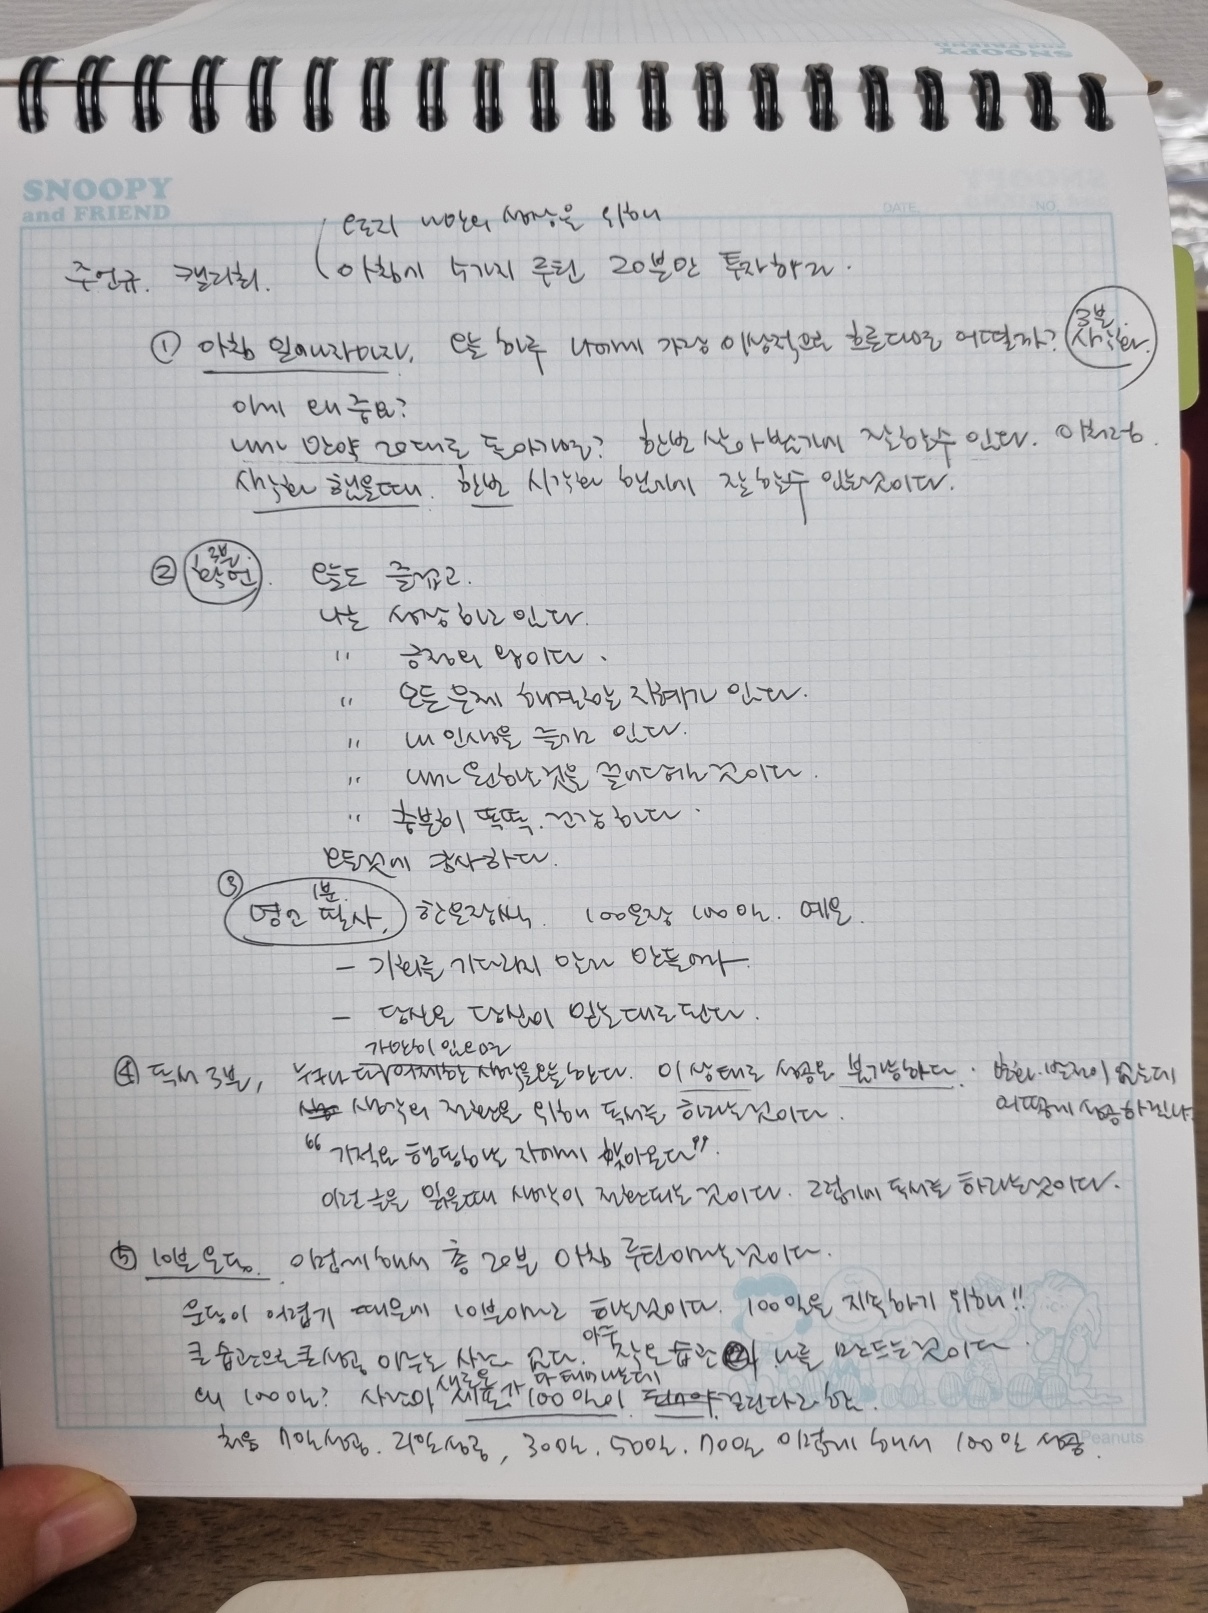 SNOOPY
and FRIEND
DATE NO.
오로지 나만의 성장을 위해
주언규. 캘리최. 아침에 5가지 루틴 20분만 투자하라.
① 아침 일어나자마자, 오늘 하루 나에게 가장 이상적으로 흐른다면 어떨까? 3분 시각화.
이게 왜 중요?
내가 만약 20대로 돌아가면? 한번 살아봤기에 잘할수 있다. 이처럼.
시각화 했을때. 한번 시각화 했기에 잘할수 있는것이다.
② 3분. 확언. 오늘도 즐겁고.
나는 성장하고 있다.
" 긍정의 왕이다.
" 모든 문제 해결하는 지혜가 있다.
" 내 인생을 즐기고 있다.
" 내가 원하는 것을 끌어당기는 것이다.
" 충분히 똑똑. 건강하다.
모든것에 감사하다.
③ 1분. 명언 필사. 한문장씩. 100문장 100일. 예문.
- 기회를 기다리지 말고 만들어라.
- 당신은 당신이 믿는대로 된다.
가만히 있으면
④ 독서 3분, 누구나 생각을 한다. 이 상태로 성공은 불가능하다. 변화. 변전이 없는데
생각의 전환을 위해 독서를 하라는것이다. 어떻게 성공하겠나
"기적은 행동하는 자에게 찾아온다".
이런 글을 읽을때 생각이 전환되는 것이다. 그렇기에 독서를 하라는것이다.
⑤ 10분 운동. 이렇게 해서 총 20분 아침 루틴이라는것이다.
운동이 어렵기 때문에 10분이라고 하는것이다. 100일을 지속하기 위해!!
큰 습관으로 큰성공 이루는 사람 없다. 아주 작은 습관이 나를 만드는것이다.
새로운 다 태어나는데
왜 100일? 사람이 세포가 100일이 걸린다고 함.
처음 7일성공. 21일성공, 30일. 50일. 70일 이렇게 해서 100일 성공.
Peanuts